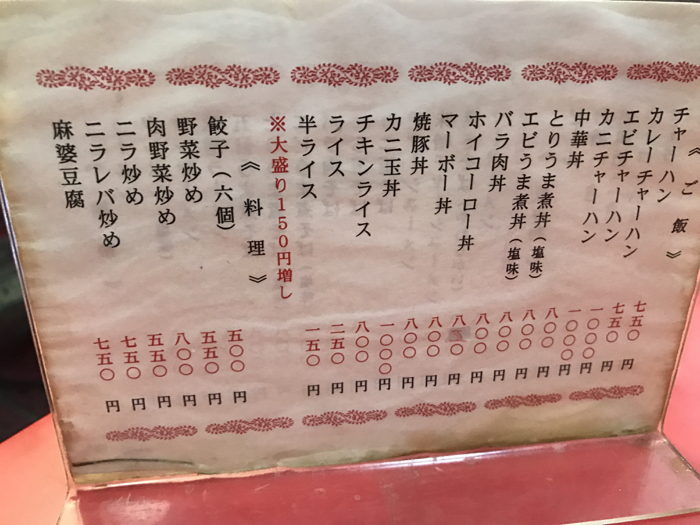 《ご飯》
チャーハン 七五〇円
カレーチャーハン 七五〇円
エビチャーハン 一〇〇〇円
カニチャーハン 一〇〇〇円
中華丼 八〇〇円
とりうま煮丼(塩味) 八〇〇円
エビうま煮丼(塩味) 八〇〇円
バラ肉丼 八〇〇円
ホイコーロー丼 八〇〇円
マーボー丼 八〇〇円
焼豚丼 八〇〇円
カニ玉丼 一〇〇〇円
チキンライス 八〇〇円
ライス 二五〇円
半ライス 一五〇円
※大盛り150円増し
《料理》
餃子(六個) 五〇〇円
野菜炒め 五五〇円
肉野菜炒め 八〇〇円
ニラ炒め 五五〇円
ニラレバ炒め 七五〇円
麻婆豆腐 七五〇円